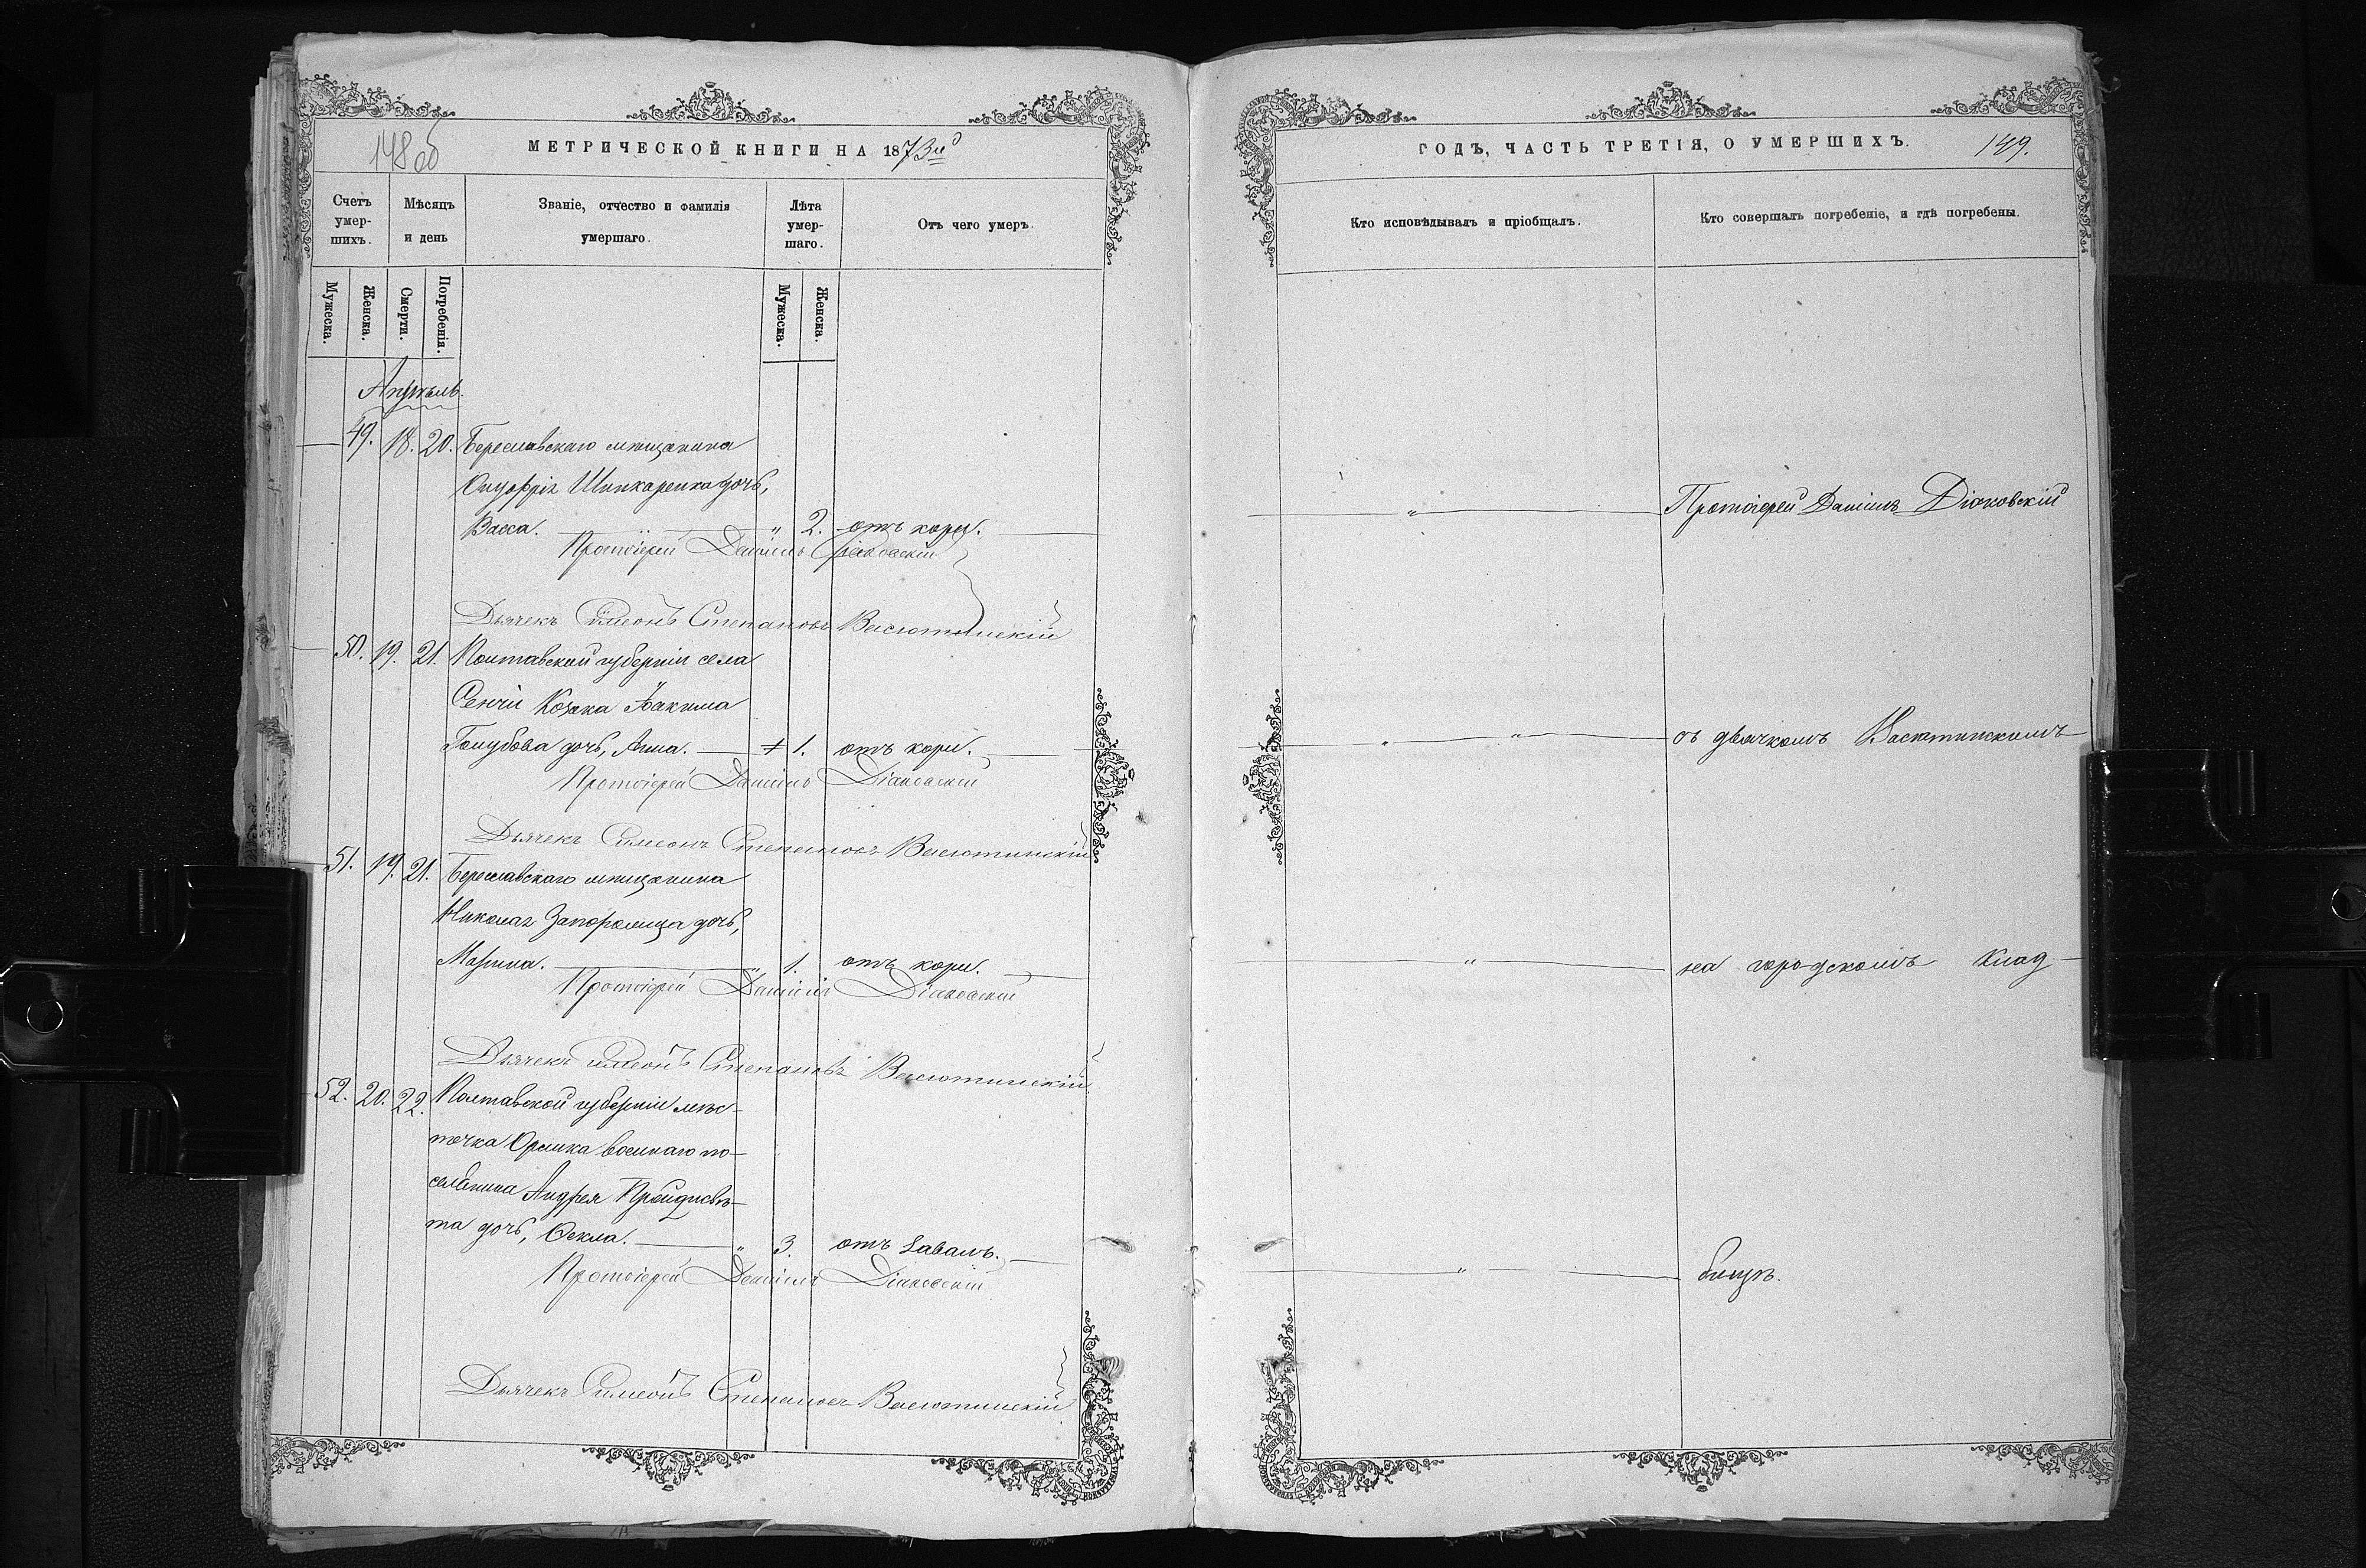 148об
МЕТРИЧЕСКОЙ КНИГИ НА 1873й
Счетъ умер-шихъ.
Мѣсяцъ и день
Званіе, отчество и фамилія умершаго.
Лѣта умер-шаго.
Отъ чего умеръ.
Мужеска.
Женска.
Смерти.
Погребенія.
Мужеска.
Женска.
Апрѣль.
49. 18. 20. Береславскаго мѣщанина
Онуфрія Шинкаренка дочь,
Васса. " 2. отъ кори.
Протоіерей Даніилъ Діаковскій
Дьячекъ Симеонъ Степановъ Васютинскій
50. 19. 21. Полтавской губерніи села
Сенчи Козака Іакима
Голубова дочь, Анна. 1. отъ кори.
Протоіерей Даніилъ Діаковскій
Дьячекъ Симеонъ Степановъ Васютинскій
51. 19. 21. Береславскаго мѣщанина
Николая Запорожца дочь,
Марина. " 1. отъ кори.
Протоіерей Даніилъ Діаковскій
Дьячекъ Симеонъ Степановъ Васютинскій
52. 20. 22. Полтавской губерніи мѣс-
течка Орлика военнаго по-
селянина Андрея
та дочь, Ѳекла. " 3. отъ
Протоіерей Даніилъ Діаковскій
Дьячекъ Симеонъ Степановъ Васютинскій
ГОДЪ, ЧАСТЬ ТРЕТІЯ, О УМЕРШИХЪ.
149.
Кто исповѣдывалъ и пріобщалъ.
Кто совершалъ погребеніе, и гдѣ погребены.
" Протоіерей Даніилъ Діаковскій
" " съ дьячкомъ Васютинскимъ
" на городскомъ клад-
" бищѣ.